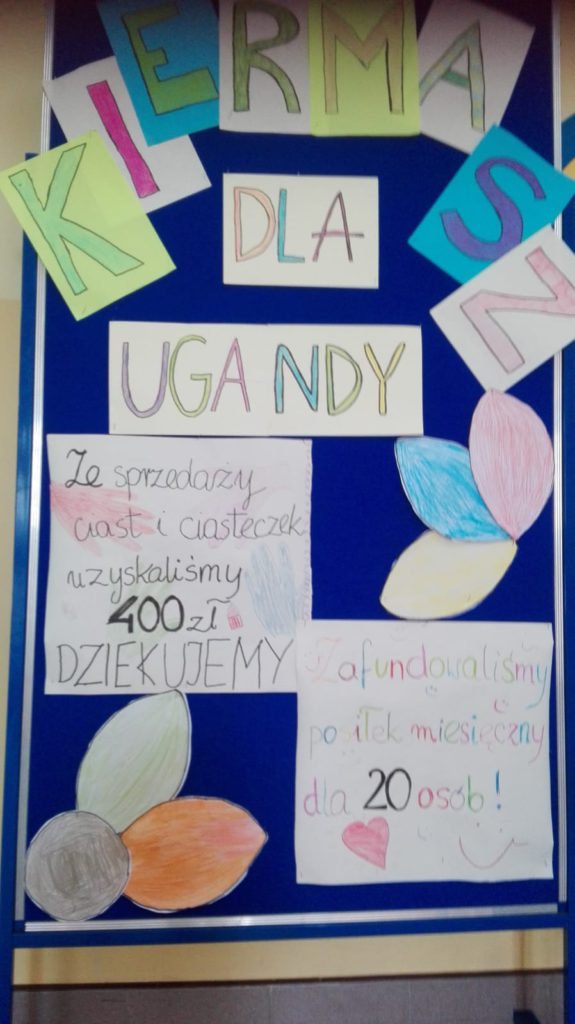 KIERMASZ
DLA
UGANDY
Ze sprzedaży
ciast i ciasteczek
uzyskaliśmy
400 zł
DZIEKUJEMY
Zafundowaliśmy
posiłek miesięczny
dla 20 osób!